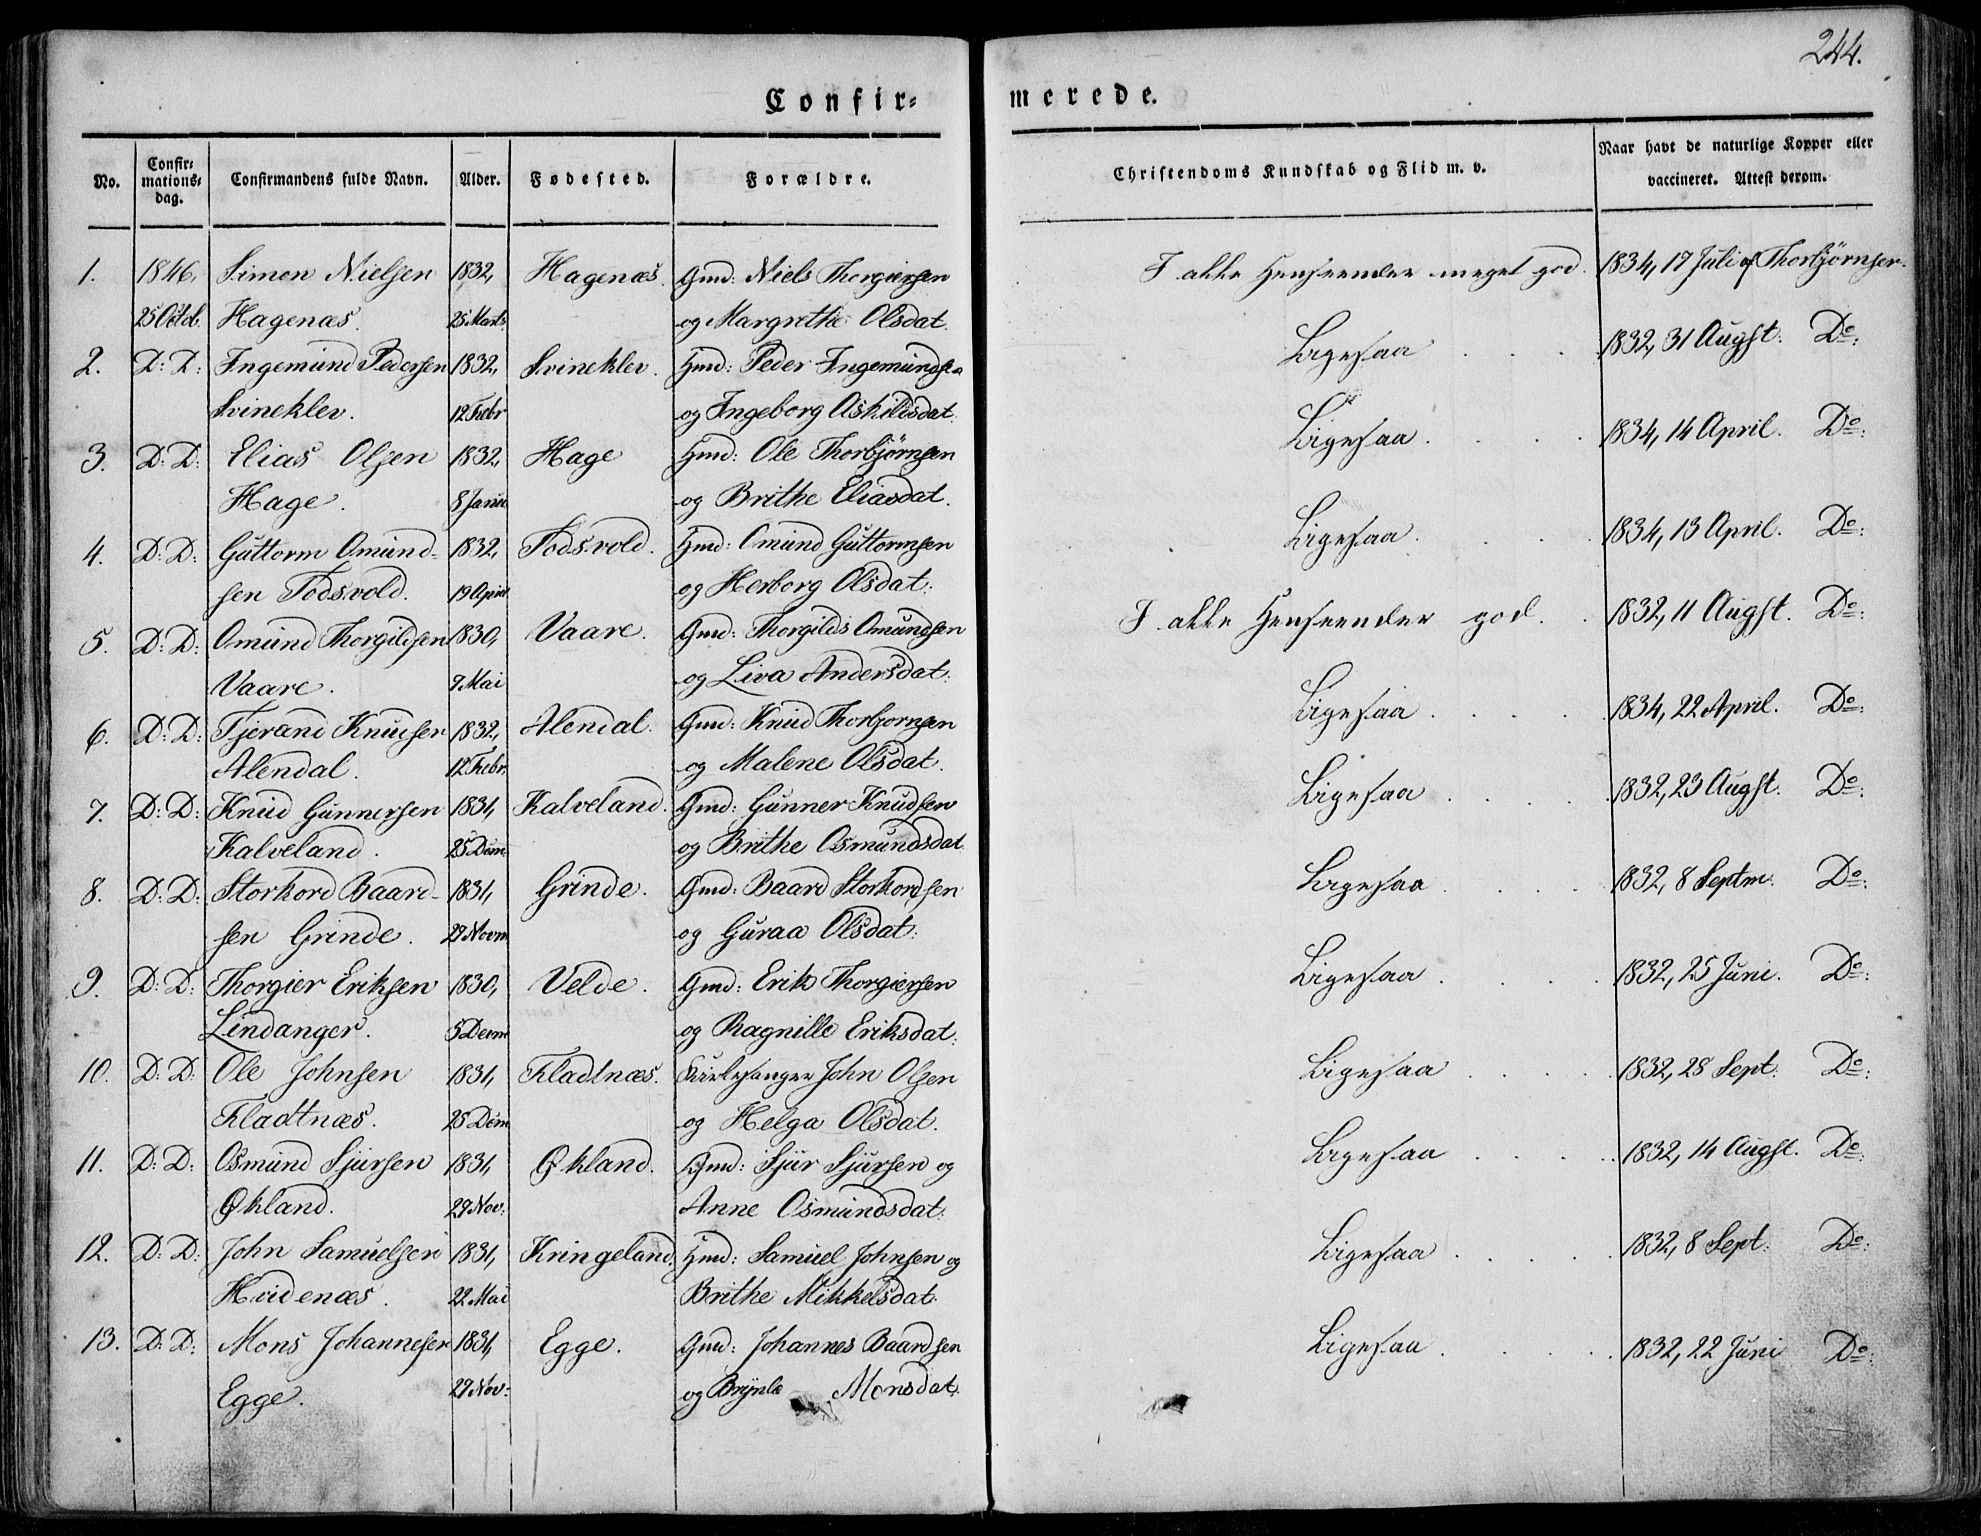 244.
Confir= merede.
No. Confir=mations=dag. Confirmandens fulde Navn. Alder. Fødested. Forældre. Christendoms Kundskab og Flid m. v. Naar havt de naturlige Kopper eller vaccineret. Attest derom.
1. 1846, Simon Nielsen 1832, Hagenæs. Gmd: Niels Thorgiersen I alle Henseender meget god. 1834, 17 Juli af Thorbjørnsen.
25 Octob. Hagenæs. 25 Marts og Margrethe Olsdat.
2. D: D: Ingemund Pedersen 1832, Svineklev. Hmd: Peder Ingemundsen Ligesaa . . . 1832, 31 Augst: Do:
Svineklev. 12 Febr og Ingeborg Askildsdat:
3. D: D: Elias Olsen 1832, Hage Hmd: Ole Thorbjørnsen Ligesaa . . . 1834, 14 April. Do:
Hage. 8 Janu og Brithe Eliasdat.
4. D: D: Guttorm Omund- 1832, Todsvold. Hmd: Omund Guttormsen Ligesaa . . . 1834, 13 April. Do:
sen Todsvold. 19 April og Herborg Olsdat:
5. D: D: Omund Thorgildsen 1830, Vaare. Gmd: Thorgilds Omundsen I alle Henseender god. . 1832, 11 Augst. Do:
Vaare. 7 Mai og Liva Andersdat:
6. D: D: Tjerand Knudsen 1832, Alendal. Gmd: Knud Thorbjornsen Ligesaa . . . 1834, 22 April. Do:
Alendal. 12 Febr. og Malene Olsdat.
7. D: D: Knud Gunnersen 1831, Kalveland. Gmd: Gunner Knudsen Ligesaa . . . 1832, 23 Augst. Do:
Kalveland. 25 Dcm og Brithe Osmundsdat
8. D: D: Storkord Baard- 1831, Grinde. Gmd: Baard Storkordsen Ligesaa . . . 1832, 8 Septm: Do:
sen Grinde. 27 Novm og Guraa Olsdat:
9. D: D: Thorgier Eriksen 1830, Velde. Gmd: Erik Thorgiersen Ligesaa . . . 1832, 25 Juni. Do:
Lindanger. 5 Decm og Ragnille Eriksdat:
10. D: D: Ole Johnsen 1831, Fladtnæs. Kirkesanger John Olsen Ligesaa . . . 1832, 28 Sept: Do:
Fladtnæs. 25 Dcm og Helga Olsdat.
11. D: D: Osmund Sjursen 1831, Økland. Gmd: Sjur Sjursen og Ligesaa . . . 1832, 14 Augst. Do:
Økland. 29 Nov: Anne Osmundsdat:
12. D: D: John Samuelsen 1831, Kringeland. Hmd: Samuel Johnsen og Ligesaa . . . 1832, 8 Sept: Do:
Hvidenæs. 22 Mai Brithe Mikkelsdat.
13. D: D: Mons Johannesen 1831, Egge. Gmd: Johannes Baardsen Ligesaa . . . 1832, 22 Juni Do:
Egge. 27 Nov: og Brynle Monsdat.